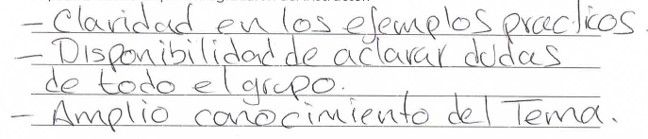 - Claridad en los ejemplos practicos.
- Disponibilidad de aclarar dudas
de todo el grupo.
- Amplio conocimiento del Tema.